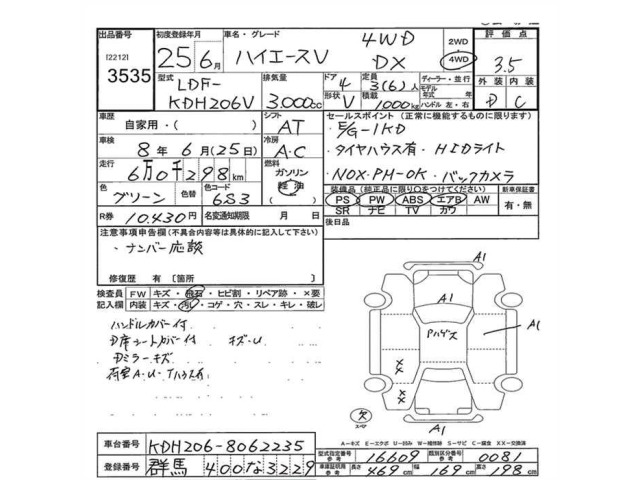 出品番号 初度登録年月 車名・グレード 4WD 2WD 評価点
[2212] 3535 25年6月 ハイエースV DX 4WD 3.5
型式 排気量 ドア 定員 ディーラー・並行 外装 内装
LDF-KDH206V 3.000cc 4 3(6)人 モデル年式 年 D C
形状 V 積載 1000kg ハンドル 左・右
車歴 シフト セールスポイント(正常に機能するものに限ります)
自家用・( ) AT E/G-1KD
車検 冷房 ・タイヤハウス有・HIDライト
8年6月(25日) A.C
走行 燃料 ・NOX・PM-OK・バックカメラ
6万0千298km ガソリン 軽油
色 色替 色コード 装備品(純正品に限り○をつけてください) 新車保証書
グリーン 6S3 PS PW ABS エアB AW 有・無
SR ナビ TV カワ
R券 10.430円 名変通知期限 月 日 後日品
注意事項申告欄(不具合内容等は具体的に記入して下さい)
・ナンバー応談
修復歴 有 [箇所 ]
検査員記入欄 FW キズ・飛石・ヒビ割・リペア跡・×要
内装 キズ・汚れ・コゲ・穴・スレ・キレ・破レ
ハンドルカバー付
D席シートカバー付 キズ・U
Dミラーキズ
荷室A・U・Tハウス有
A1
A1
A1
A1
欠
A-キズ E-エクボ U-凹み W-補修跡 S-サビ C-腐食 XX-交換済
車台番号 KDH206-8062235
登録番号 群馬 400な3229
型式指定番号 参考 16609 類別区分番号 参考 0081
車庫証明用 参考 長さ 469cm 幅 169cm 高さ 198cm